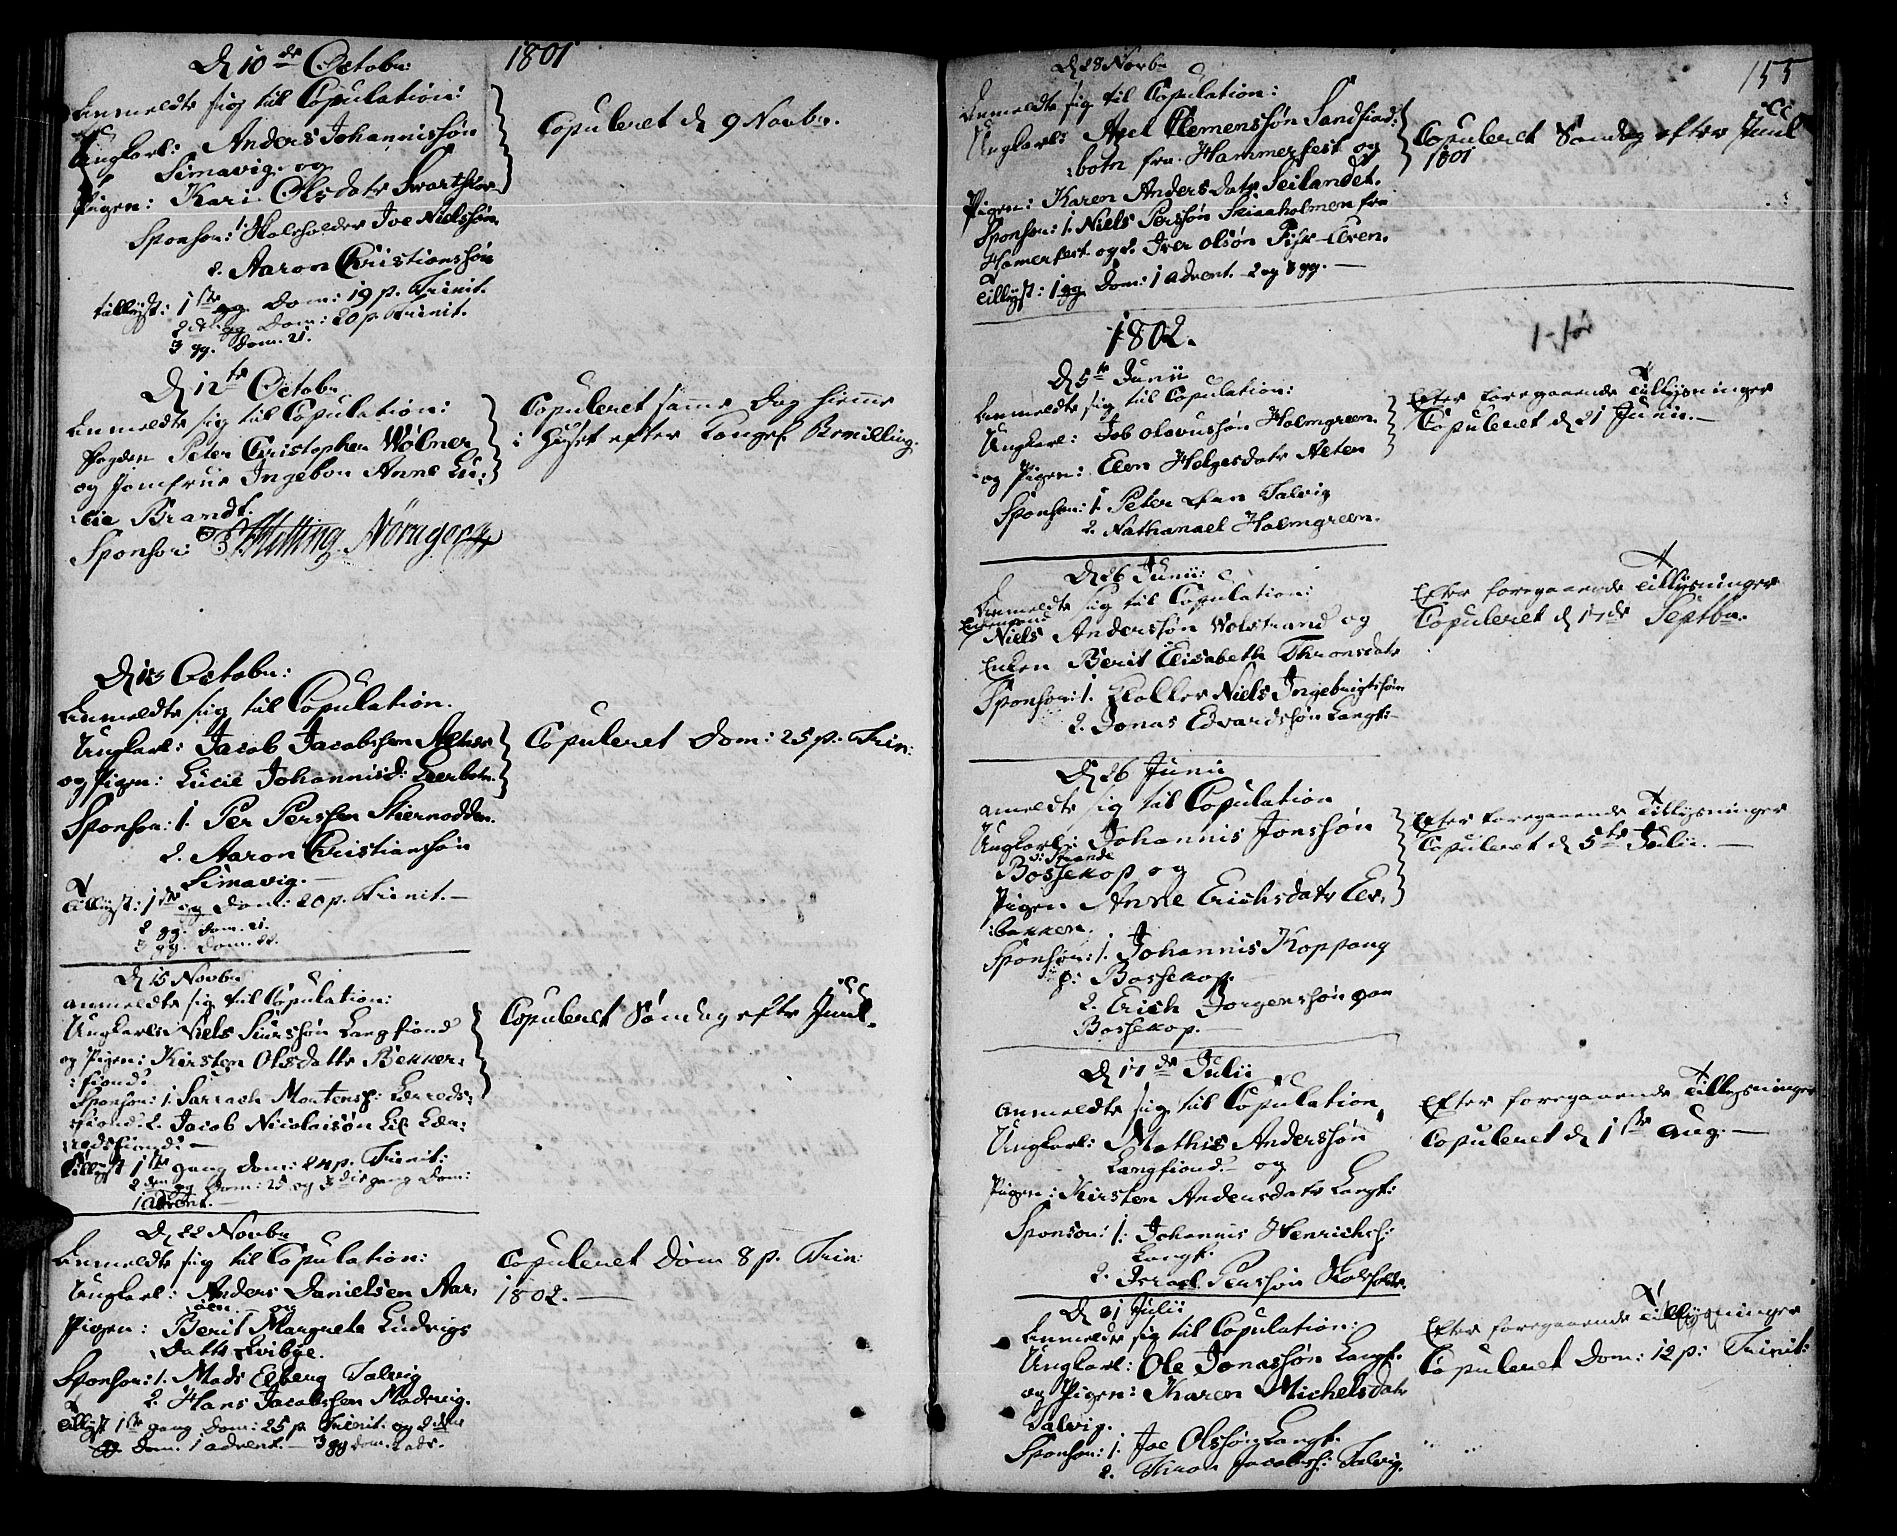 1801
D 10de Octobr:
Anmeldte sig til Copulation:
Ungkarl: Anders Johannissøn
Simavig og
Pigen: Kari Olsdatr
Sponsor: 1. Joe Nielssøn
2. Aaron Christianssøn
Tillyst: 1ste gg. Dom: 19 p. Trinit.
2den gg Dom: 20 p. Trinit.
3 gg. Dom. 21.
Copuleret d 9 Novbr.
D 12te Octobr.
Anmeldte sig til Copulation:
Fogden Peter Christopher Wolmer
og Jomfrue Ingebor Anne Lu:
:cie Brandt.
Sponsor:
Copuleret samme Dag hiemme
i Huset efter Kongel. Bevilling.
D 13 Octobr:
Anmeldte sig til Copulation.
Ungkarl: Jacob Jacobssen
og Pigen: Lucie Johannisd: Leerbotn.
Sponsor: 1. Per Perssen Stiernodden.
2. Aaron Christianssøn
Simavig.
Tillyst: 1ste gg Dom: 20 p. Trinit.
2 gg. Dom. 21.
3 gg. Dom. 22.
Copuleret Dom: 25 p. Trin:
D 15 Novbr
Anmeldte sig til Copulation:
Ungkarl: Niels Siurssøn Langfiord
og Pigen: Kirsten Olsdattr Bekker:
:fiord:
Sponsor: 1. Sarrach Mortens:
:fiord: 2. Jacob Nicolaisøn
Tillyst 1ste gang Dom: 24 p. Trinit:
2den gg Dom: 25 og 3die gang Dom:
1 Advent.
Copuleret Søndag efter Juul.
D 22 Novbr
Anmeldte sig til Copulation:
Ungkarl: Anders Danielsen Aar:
:øen. og
Pigen: Berit Margrete Ludvigs
Dattr Qvibye.
Sponsor: 1. Mads Elberg Talvig
2. Hans Jacobssen Madvig.
Tillyst 1ste gang Dom: 25 p. Trinit: og 2den
gg Dom: 1 Advent. 3 gg Dom. 2 adv.
Copuleret Dom 8 p. Trin:
1802.
155
D 28 Novbr
Anmeldte sig til Copulation:
Ungkarl: Axel Clemenssøn Sandfiord:
:botn fra Hammerfest og
Pigen: Karen Andersdatr Seilandet.
Sponsor: 1. Niels Perssøn Skiaaholmen fra
Hamerfest og 2. Iver Olsøn
Tillyst: 1 gg Dom: 1 Advent. 2 og 3 gg.
Copuleret Søndag efter Juul
1801
1802.
D 5te Junii
Anmeldte sig til Copulation:
Ungkarl: Job Olavussøn Holmgreen
og Pigen: Elen Helgesdatr Alten
Sponsor: 1. Peter Talvig
2. Nathanael Holmgreen.
Efter foregaaende Tillysninger
Copuleret d 21 Junii.
D 26 Junii:
Anmeldte sig til Copulation:
Enkemand
Niels Anderssøn Wolstrand og
Enken Berit Elisabeth Thronsdatr
Sponsor: 1. Niels Ingebrigtssøn
2. Jonas Edvardssøn Langf:
Efter foregaaende Tillysninger
Copuleret d 17de Septbr.
D 26 Junii
Anmeldte sig til Copulation
Ungkarl: Johannis Jonssøn
Bossekop og
Pigen Anne Erichsdatr Elv:
:bakken.
Sponsor: 1. Johannis Koppang
p: Bossekop.
2. Erich Jorgenssøn paa
Bossekop.
Efter foregaaende Tillysninger
Copuleret d 5te Julii.
D 17de Julii
Anmeldte sig til Copulation,
Ungkarl: Mathis Anderssøn
Langfiord og
Pigen: Kirsten Andersdatr Langf:
Sponsor: 1. Johannis Henrichs:
Langf:
2. Israel Perssøn
Efter foregaaende Tillysninger
Copuleret d 1ste Aug.
D 21 Julii
Anmeldte sig til Copulation:
Ungkarl: Ole Jonassøn Langf.
og Pigen: Karen Michelsdatr
Talvig.
Sponsor: 1. Joe Olssøn Langf.
2. Thron Jacobs: Talvig.
Efter foregaaende Tillysninger
Copuleret Dom: 12 p: Trinit: